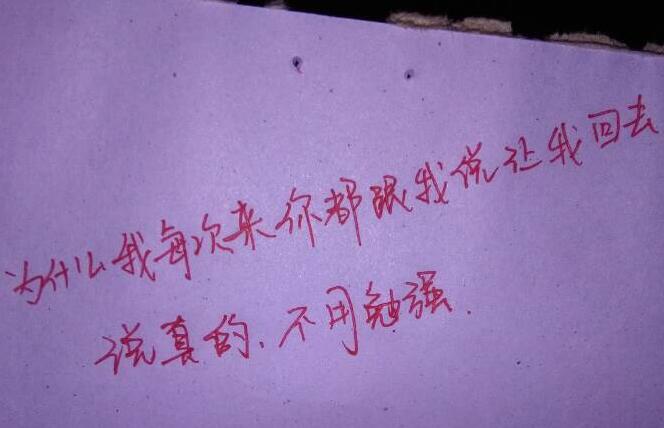 为什么我每次来你都跟我说让我回去
说真的、不用勉强.